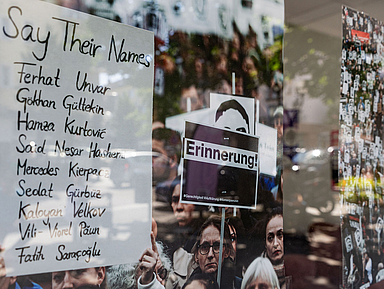 Say Their Names
Ferhat Unvar
Gökhan Gültekin
Hamza Kurtović
Said Nesar Hashemi
Mercedes Kierpacz
Sedat Gürbüz
Kaloyan Velkov
Vili-Viorel Păun
Fatih Saraçoğlu
Erinnerung!